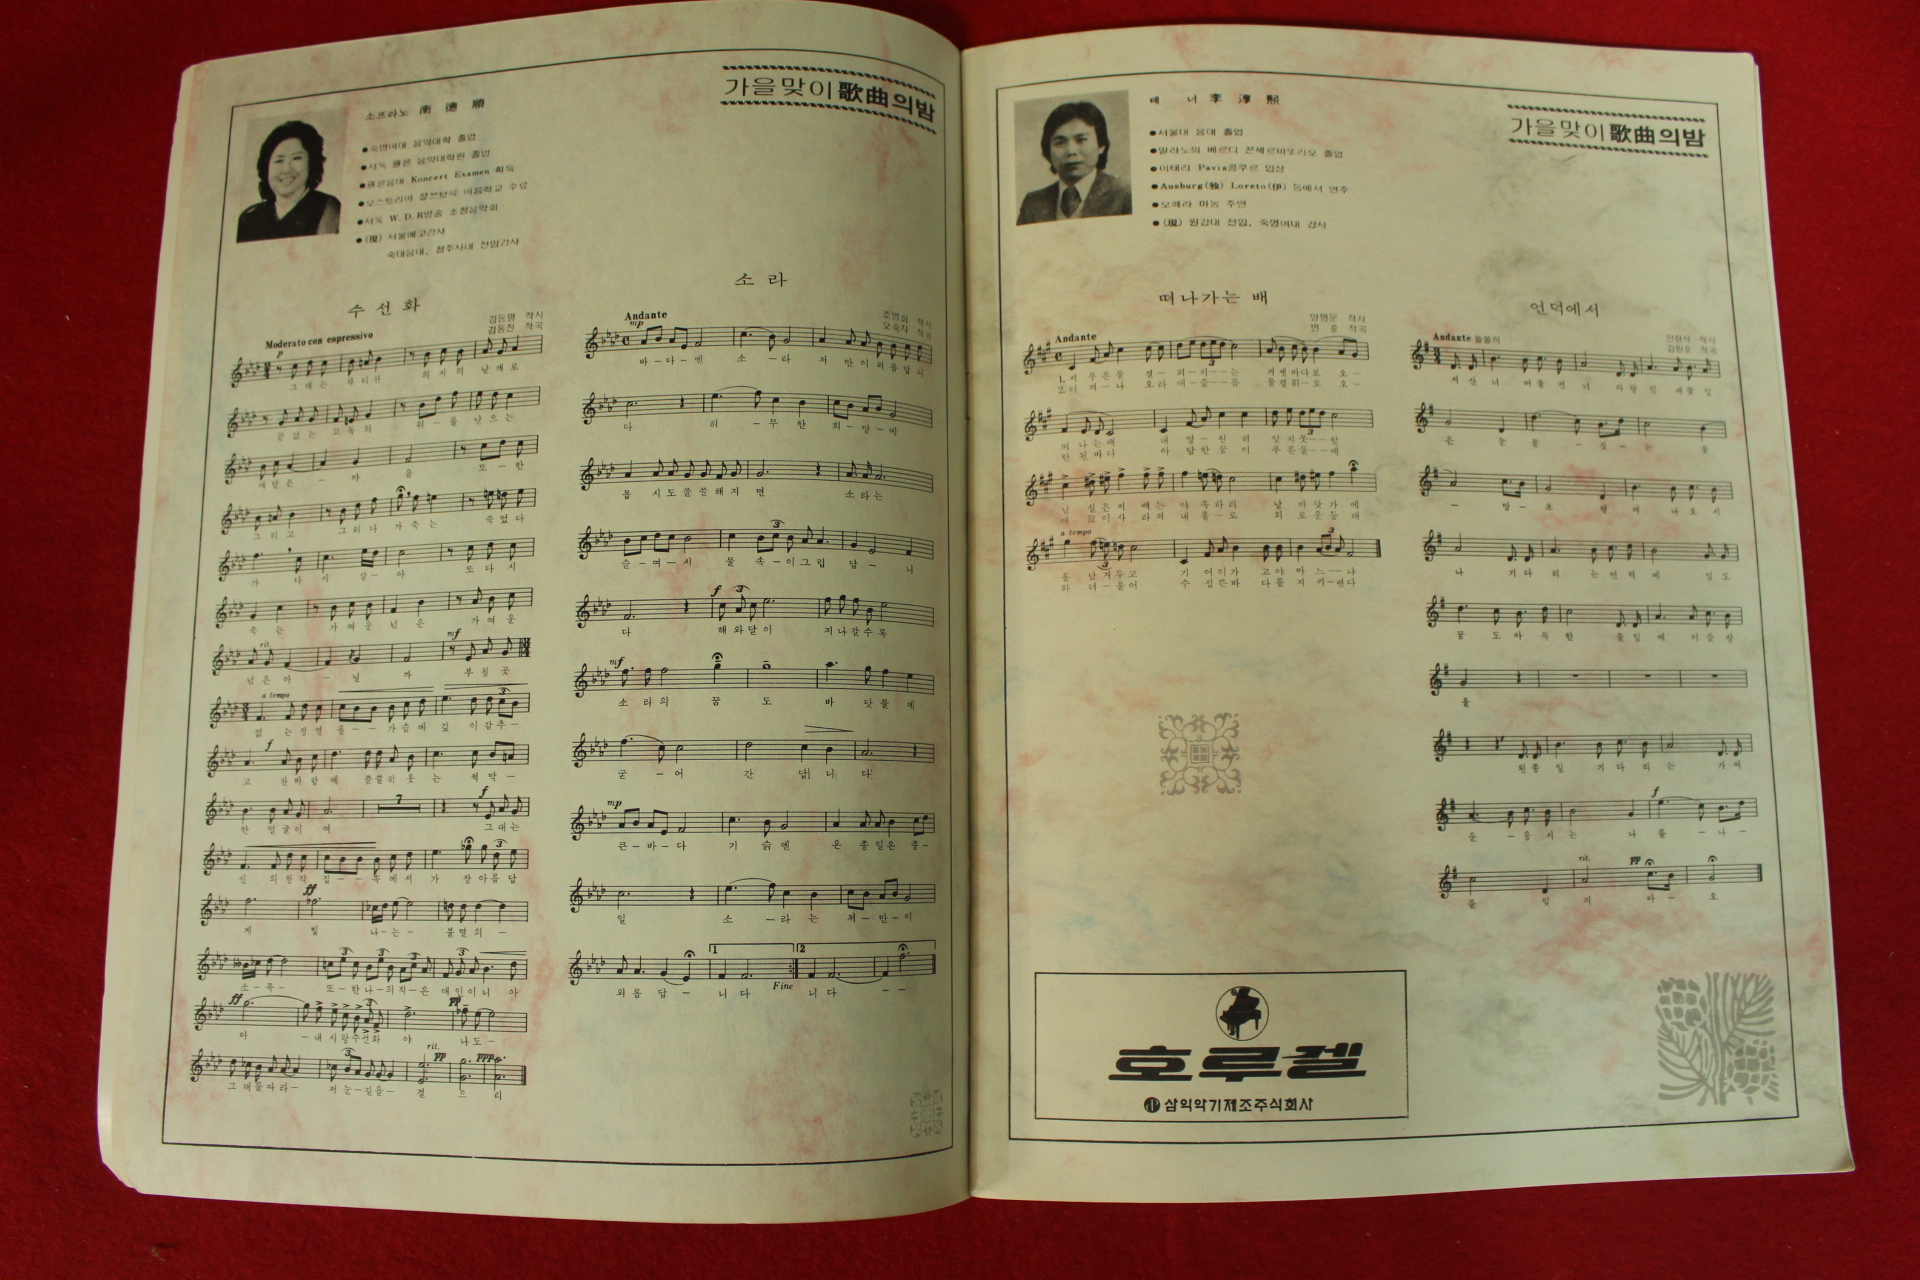 가을맞이歌曲의밤
소프라노 南 德 順
●숙명여대 음악대학 졸업
●서독 쾰른 음악대학원 졸업
●쾰른음대 Koncert Examen 획득
●오스트리아 잘쯔브륵 여름학교 수료
●서독 W.D.R방송 초청음악회
●(現) 서울예고강사
숙대음대, 청주사대 전임강사
수 선 화
김동명 작시
김동진 작곡
Moderato con espressivo
p
그대는 차디찬 의지의 날개로
끝없는 고독의 위-를 날으는
애달픈 - 마 음 또-한
그리고 그리다 가죽는 죽었다
가 다시 살-아 또다시
죽는 가여운 넋은 가여운
rit.
mf
넋은아 - 닐 까 부칠곳
a tempo
없 는정열 을--가슴에 깊 이감추-
f
고 찬바람에 쓸쓸히웃 는 적막-
7
f
한 얼굴이여 그대는
신 의창작 집--속에서 가 장아름답
ff
게 빛 나-는- 불멸의-
소-곡- 또-한나-의작-은 애인이니 아
ff
pp
아 -내사랑수선화 야 나도-
rit.
pp
ppp
그대를따라- 저눈-길을- 걸 으 리
소 라
조병화 작시
오숙자 작곡
Andante
mp
바-다-엔 소-라 저 만이외롭답니
다 허 -무 한 희-망-에
몹 시도쓸쓸해지 면 소라는
슬-며-시 물 속-이그립 답- 니
f
다 해와달이 지나갈수록
mf
소라의 꿈 도 바 닷물에
굳-어 간 답니 다
mp
큰-바-다 기 슭엔 온 종일은 종-
일 소 -라는 저-만이
1
2
외롭 답- 니다 Fine 니다 --
가을맞이歌曲의밤
테 너 李 淳 熙
●서울대 음대 졸업
●밀라노의 베르디 꼰세르바또리오 졸업
●이태리 Pavia콩쿠르 입상
●Ausburg(獨) Loreto(伊) 등에서 연주
●오페라 마농 주연
●(現) 원강대 전임, 숙명여대 강사
떠나가는 배
양명문 작사
변 훈 작곡
Andante
1.저 푸른물 결-외-치--는 거센바다로 오-
2.터 져-나 오라 애-슬--픔 물결위-로 오-
떠 나는배 내 영-원 히 잊지못--할
한 된바다 아 담한꿈 이 푸른물--에
님 실은저 배는 야 속하리 날 바닷가 에
애 끓이사 라져 내 홀-로 외 로운등대
a tempo
홀 남겨두고 기 어이가 고야 마 느--냐
와 더-불어 수 심뜬바 다를 지 키-련다
언덕에서
민형식 작시
김원호 작곡
Andante 쓸쓸히
저산 너 머물건 너 파랗 잎 새꽃 잎
은 눈물 - 짓-는 물
- 망-초 행 여 나오 시
나 기다 리 는언덕 에 임도
꿈 도아 득 한 풀잎에 이슬방
울
왼종 일 기다리는 가여
f
운 -응시는 나를 -나-
rit.
pp
를 잊 지 마- 오
호루겔
삼익악기제조주식회사